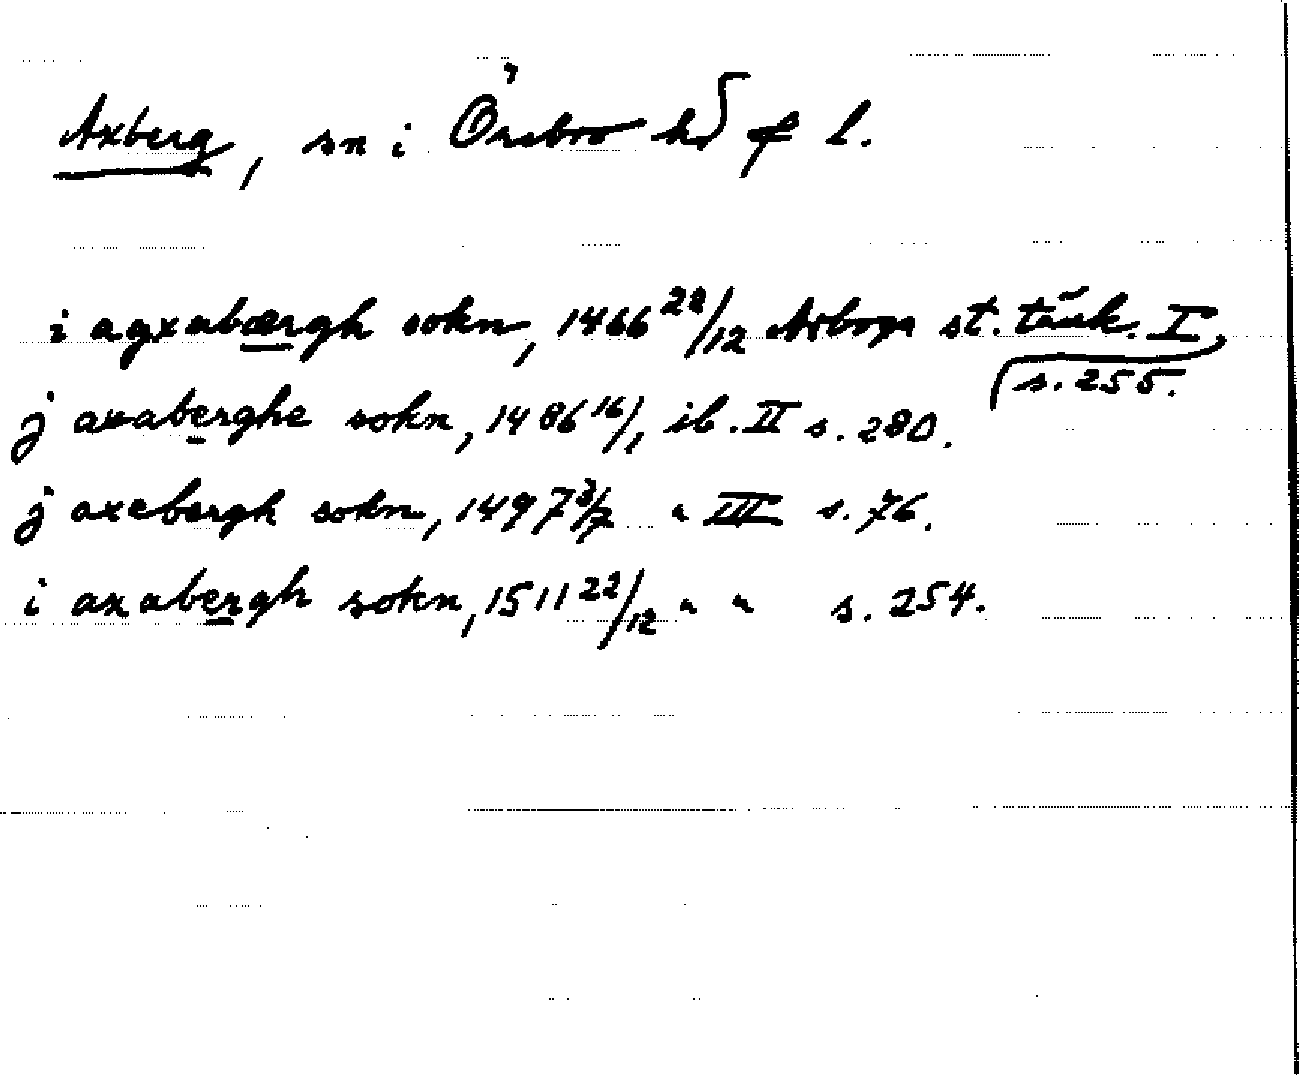 Axberg, sn i Örebro hd o l.
i agxabærgh sokn, 1466 22/12 Arboga st. tänk. I
s. 255.
j axaberghe sokn, 1486 16/1, ib. II s. 280.
j axebergh sokn, 1497 3/7 " III s. 76.
i axabergh sokn, 1511 22/12 " " s. 254.